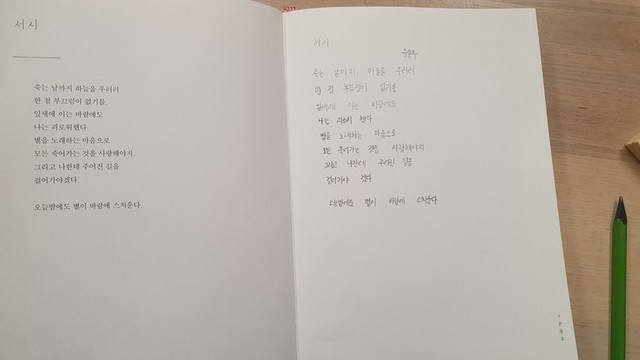 서시
죽는 날까지 하늘을 우러러
한 점 부끄럼이 없기를,
잎새에 이는 바람에도
나는 괴로워했다.
별을 노래하는 마음으로
모든 죽어가는 것을 사랑해야지.
그리고 나한테 주어진 길을
걸어가야겠다.
오늘밤에도 별이 바람에 스치운다.
서시
윤동주
죽는 날까지 하늘을 우러러
한 점 부끄럼이 없기를
잎새에 이는 바람에도
나는 괴로워 했다
별을 노래하는 마음으로
모든 죽어가는 것을 사랑해야지
그리고 나한테 주어진 길을
걸어가야 겠다
오늘밤에도 별이 바람에 스치운다
윤동주